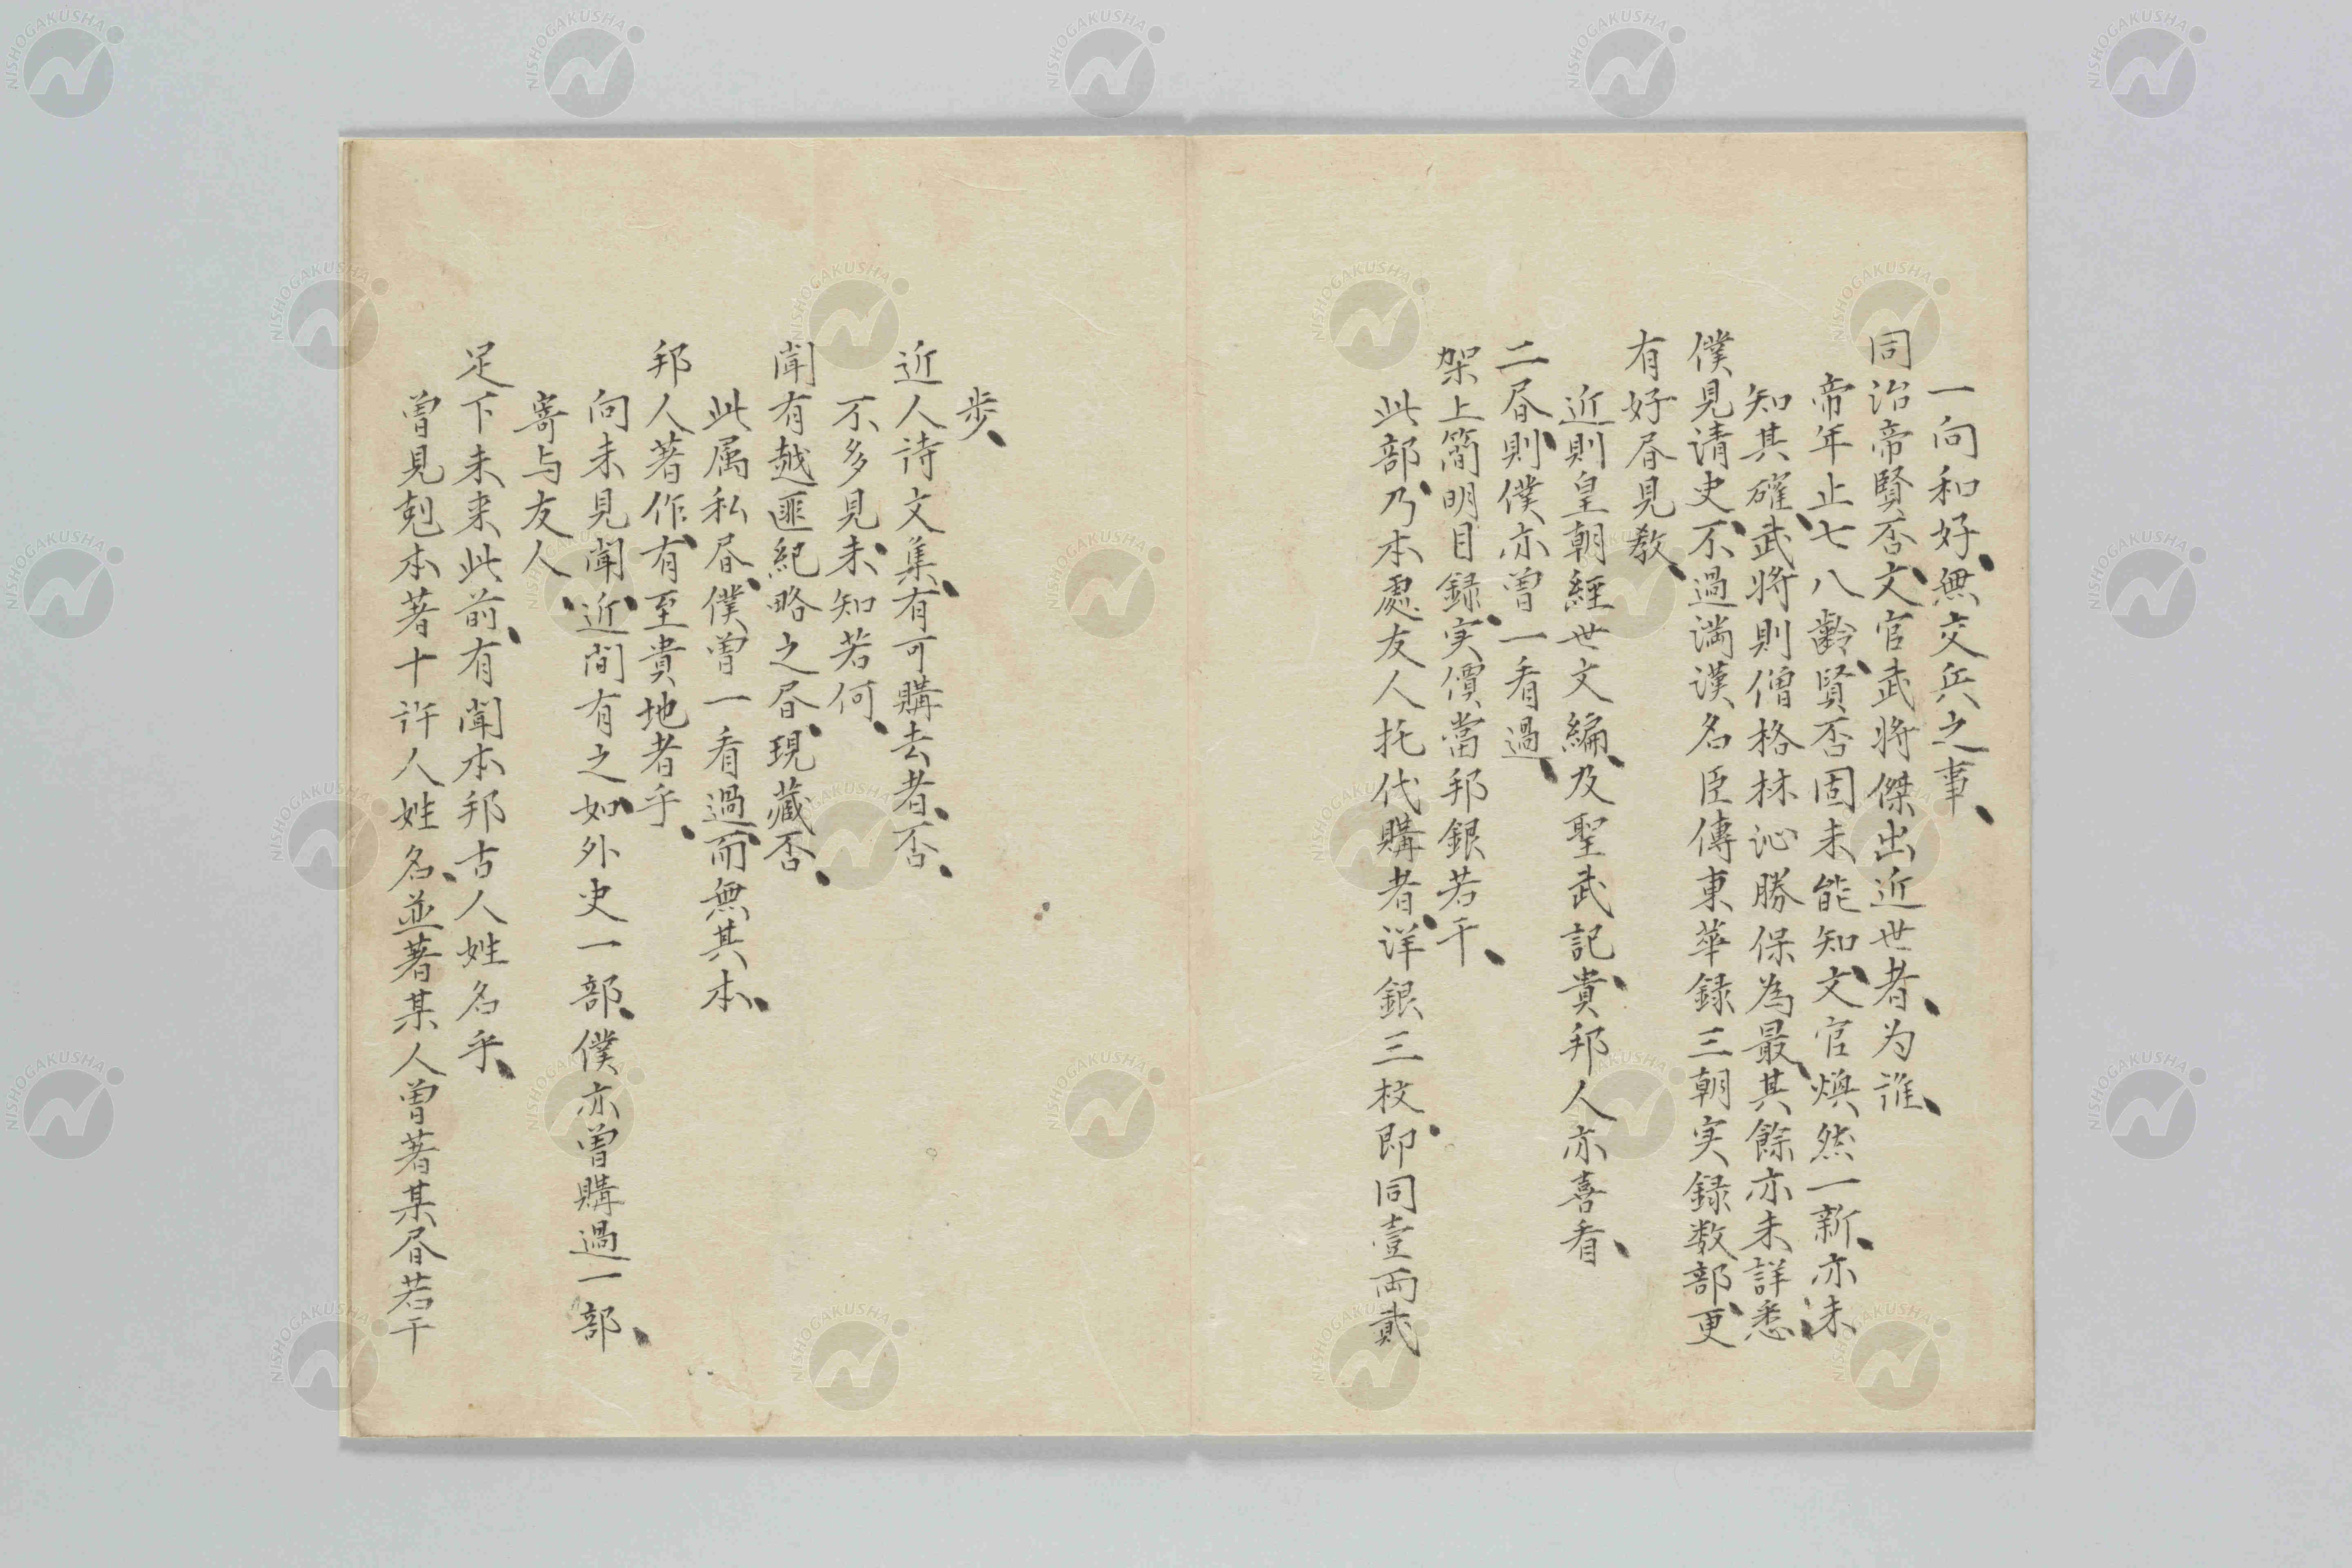 一向和好、無交兵之事、
同治帝賢否、文官武将傑出近世者、为誰、
帝年止七八齡、賢否固未能知、文官煥然一新、亦未
知其確、武将則僧格林沁勝保為最、其餘亦未詳悉、
僕見请史、不過満漢名臣傳東華録三朝实録数部、更
有好昏見教、
近則皇朝經世文編、及聖武記、貴邦人亦喜看、
二昏、則僕亦曽一看過、
架上簡明目録、实價當邦銀若干、
此部、乃本處友人托代購者、洋銀三枚、即同壹両貳
步、
近人诗文集、有可購去者、否、
不多見、未知若何、
聞有越匪紀略之昏、現藏否、
此属私昏、僕曽一看過、而無其本、
邦人著作、有至貴地者乎、
向未見聞、近間有之、如外史一部、僕亦曽購過一部、
寄与友人、
足下未来此前、有聞本邦古人姓名乎、
曽見剋本著十许人姓名、並著某人曽著某昏若干
NISHOGAKUSHA